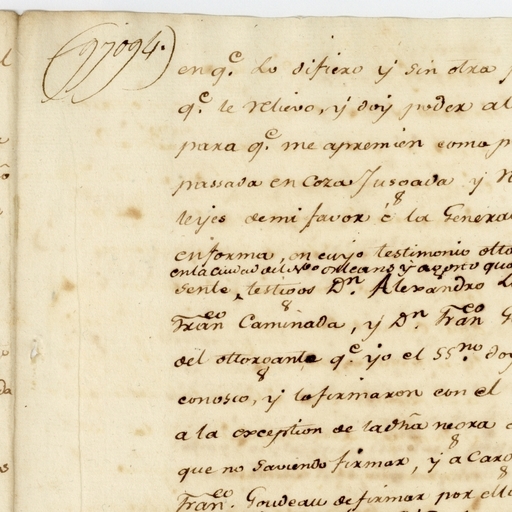 (97094.)
en q.e lo difiero y sin otra
q.e le relievo, y doy poder al
para q.e me apremien como p
passada en Coza Jusgada y
leyes de mi favor é la Genera
en forma, en cuyo testimonio otto
en la ciudad del Nvo orleans y agosto qua
sente, testigos Dn. Alexandro
Fran.co Caminada, y Dn. Fran.co
del ottorgante q.e yo el SS.no doy
conosco, y lo firmaron con el
a la exception de la dha negra
que no saviendo firmar, y a Caro
Fran.co Goudeau de firmar por ell